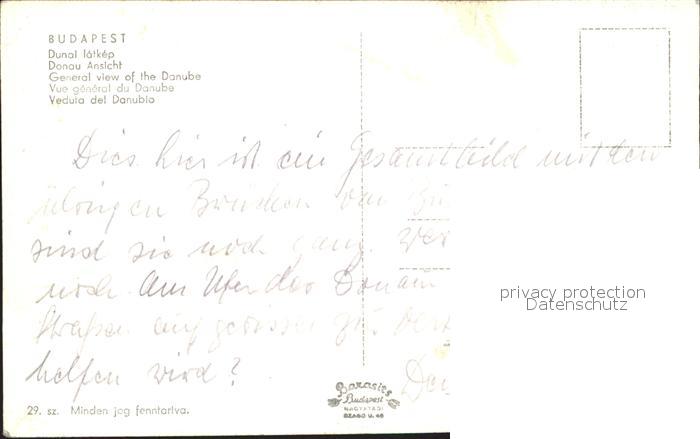 BUDAPEST
Dunai látkép
Donau Ansicht
General view of the Danube
Vue général du Danube
Veduta del Danubio
Dies hier ist ein Gesamtbild mit den
übrigen Brücken von Bu
sind sie noch ganz. Wer
noch am Ufer der Donau
Straßen
helfen wird?
privacy protection
Datenschutz
29. sz. Minden jog fenntartva.
Barasits
Budapest
NAGYATÁDI
SZABÓ U. 46